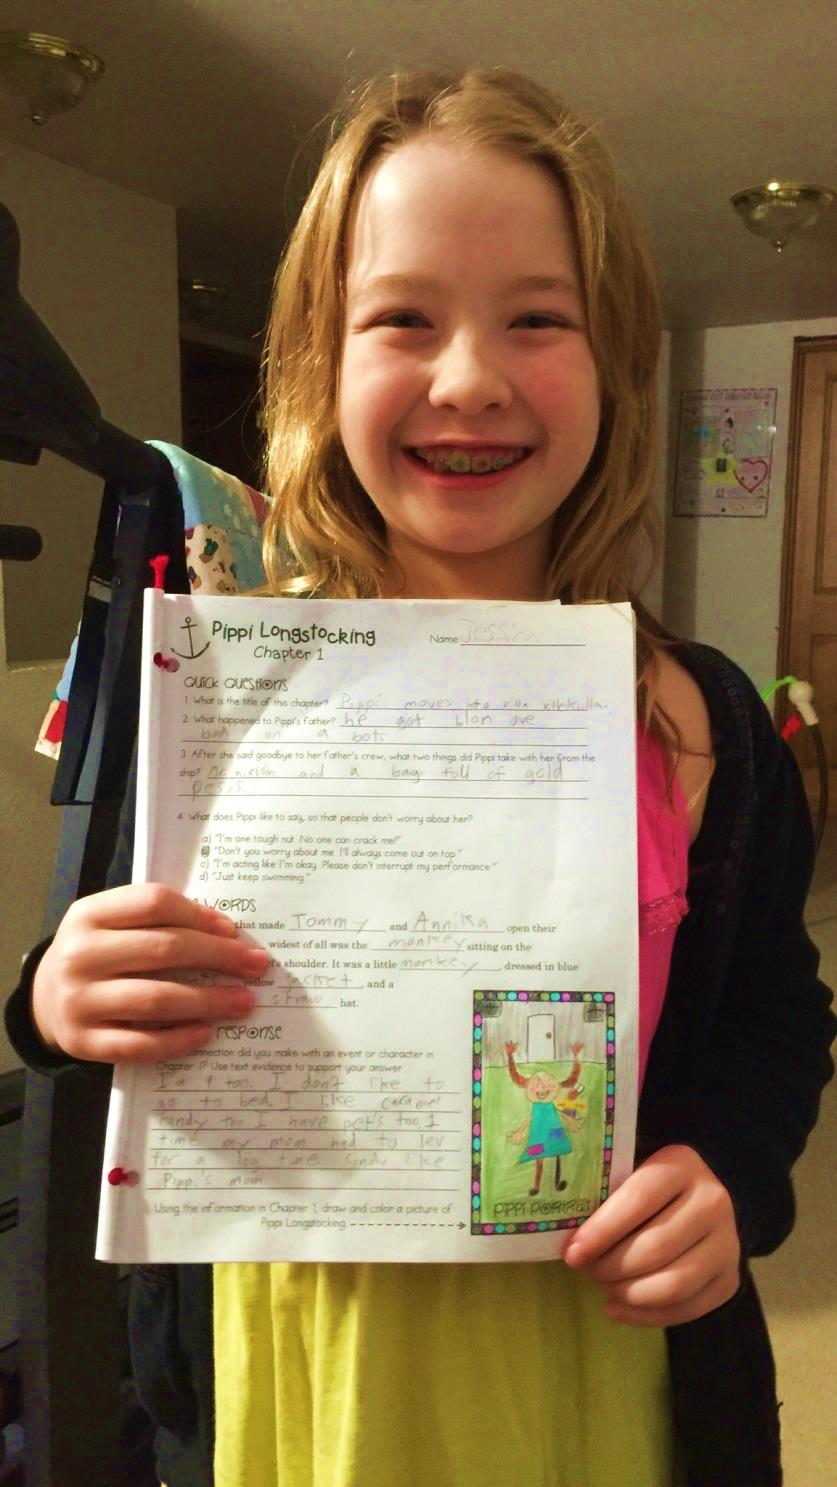 Pippi Longstocking
Name Jessica
Chapter 1
Quick Questions
1. What is the title of this chapter? Pippi moves into villa villekulla
2. What happened to Pippi's father? he got blon ove
bod on a bots
3. After she said goodbye to her father's crew, what two things did Pippi take with her from the
ship? Mr nielson and a bag foll of gold
pesis.
4. What does Pippi like to say, so that people don't worry about her?
a) "I'm one tough nut. No one can crack me!"
b) "Don't you worry about me. I'll always come out on top."
c) "I'm acting like I'm okay. Please don't interrupt my performance."
d) "Just keep swimming."
WORDS
that made Tommy and Annika open their
widest of all was the monkey sitting on the
l's shoulder. It was a little monkey, dressed in blue
yellow jacket, and a
straw hat.
response
connection did you make with an event or character in
Chapter 1? Use text evidence to support your answer.
I a 9 too. I don't like to
go to bed. I like caramel
candy too. I have pet's too. 1
time my mom had to lev
for a log time cindu like
Pippi's mom.
Using the information in Chapter 1, draw and color a picture of
Pippi Longstocking.
Pippi Portrait